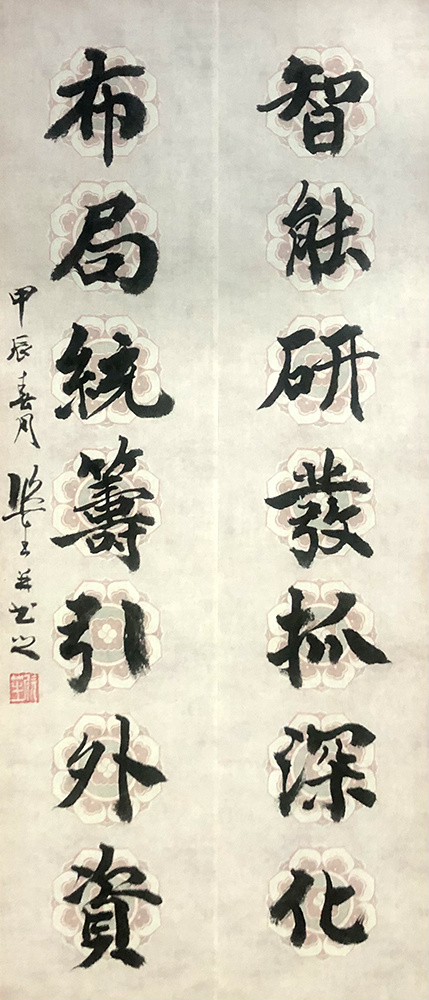 智能研發抓深化
布局統籌引外資
甲辰春月
並書之